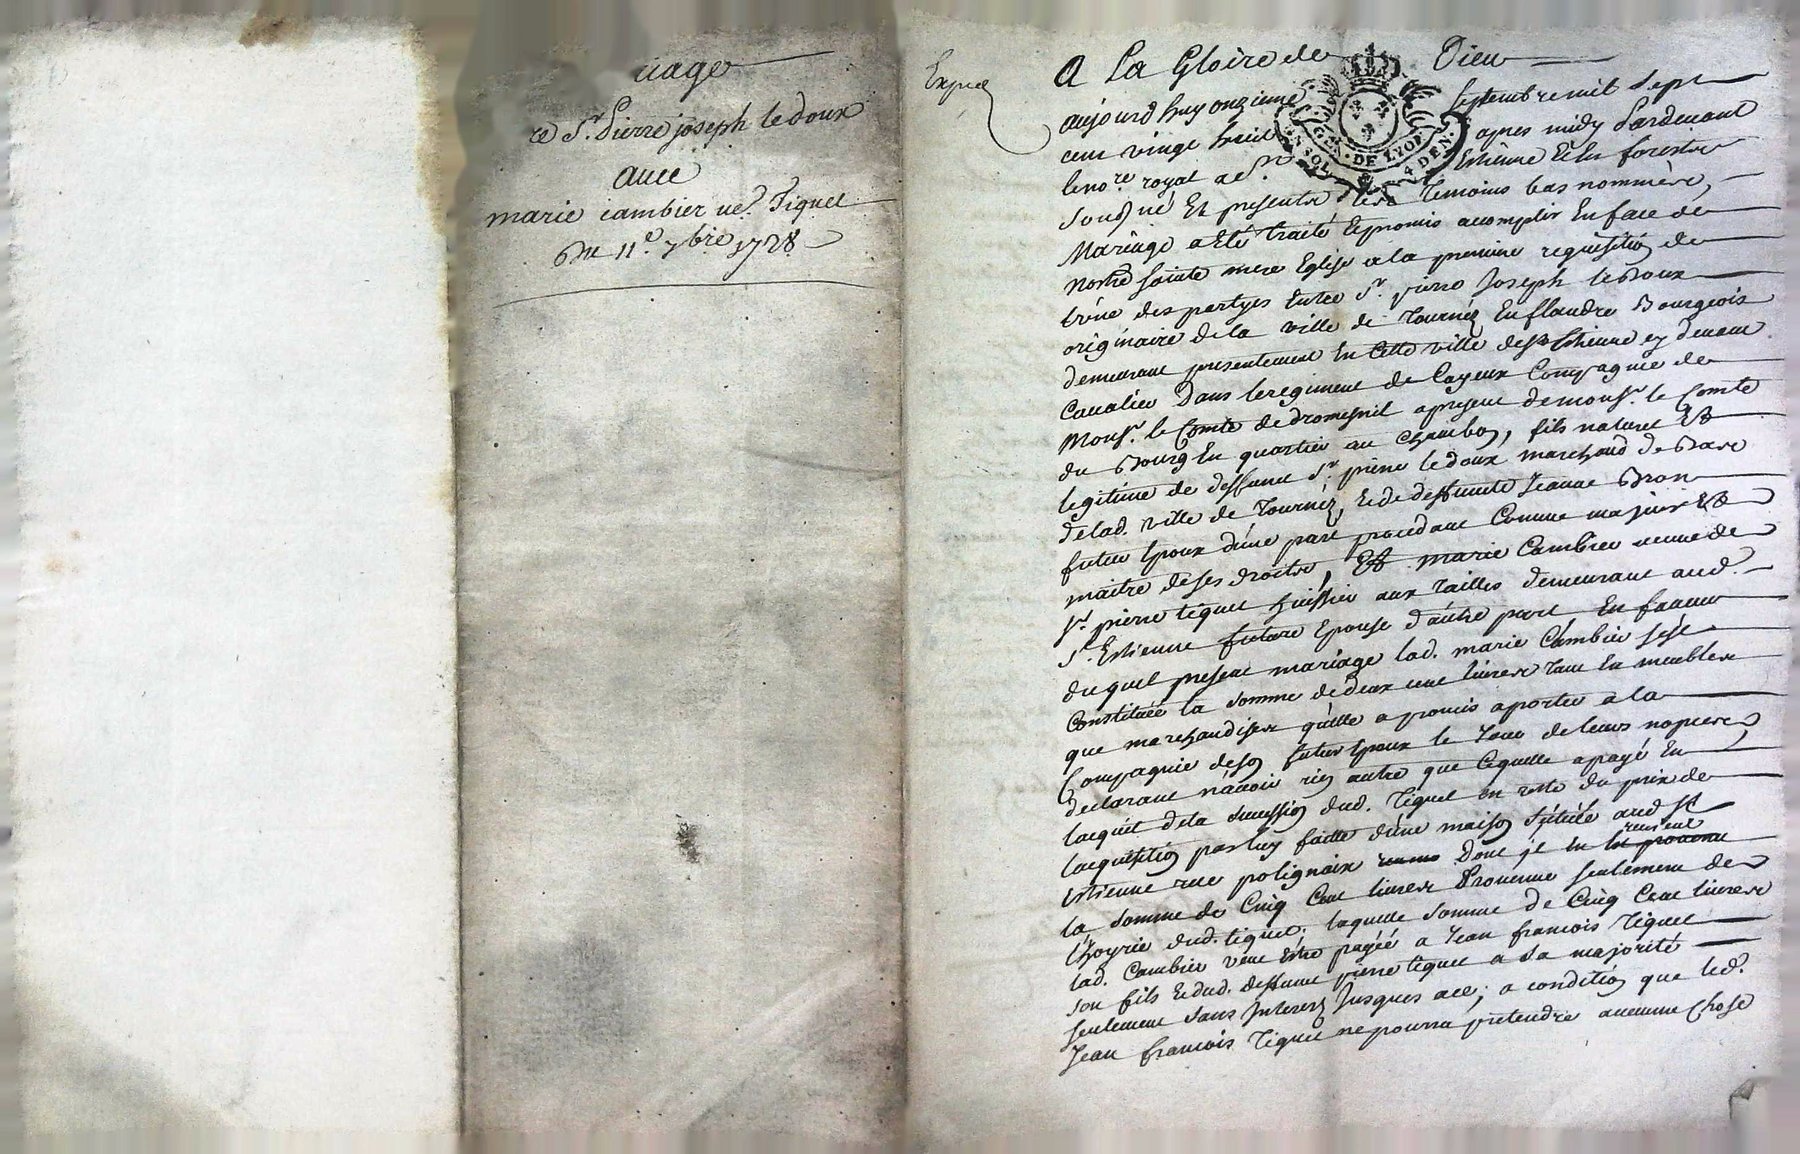 riage
re Sr. Pierre joseph ledoux
avec
marie cambier ve. Tiquet
Du 11e. 7bre 1728
Expié
A La Gloire de Dieu
aujourd'huy onzieme septembre mil sept
cent vingt huit apres midy Pardevant
le no.re royal a St. Estienne En forests
sousigné Et presents Les Témoins bas nommées,
Mariage a eté traité Et promis acomplir En face de
nostre sainte mere Eglise a la premiere requisitio de
l'une des partyes Entre Sr. pierre Joseph leDoux
originaire de la ville de Tournéz En flandre Bourgeois
demeurant presentement En Cette ville de St Estienne cy devant
Cavalier Dans le regiment de Cayeux Compagnie de
Monsr. le Comte de dromesnil a present de monsr. le Comte
du Bourg En quartier au chambo, fils naturel Et
legitime de deffunt Sr. pierre ledoux marchand de Bare
de lad. ville de Tournéz, Et de deffunte Jeanne Bron
futur Epoux d'une part procedant Comme majeur Et
maitre de ses droits, Et marie Cambier veuve de
Sr. pierre tiquet huissier aux Tailles demeurant aud.
St. Estienne future Epouse d'autre part En faveur
du quel present mariage lad. marie Cambier s'est
Constituée la somme de deux cent livres tant En meubles
que marchandises qu'elle a promis aporter a la
Compagnie de so futur Epoux le Jour de leurs nopces
declarant n'avoir rie autre que Cequelle a payé En
l'acquit de la succession dud. Tiquet En reste du prix de
l'acquisitio par luy faitte d'une maiso située aud St
Estienne rue polignaix dont je revient
la somme de Cinq Cent livres Provenue seulement de
l'hoyrie dud. tiquet. laquelle somme de Cinq Cent livres
lad. Cambier veut Estre payéé a Jean francois Tiquet
son fils Et dud. deffunt pierre tiquet a sa majorité
seulement sans Interest Jusques ace, a conditio que led.
Jean francois Tiquet ne pourra pretendre aucune chose